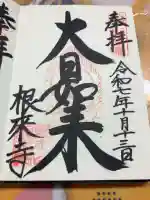 奉拝
令和七年十月十三日
大日如来
根来寺
奉拝